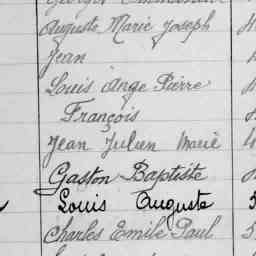 Auguste Marie Joseph
Jean
Louis Ange Pierre
François
Jean Julien Marie
Gaston Baptiste
Louis Auguste
Charles Emile Paul